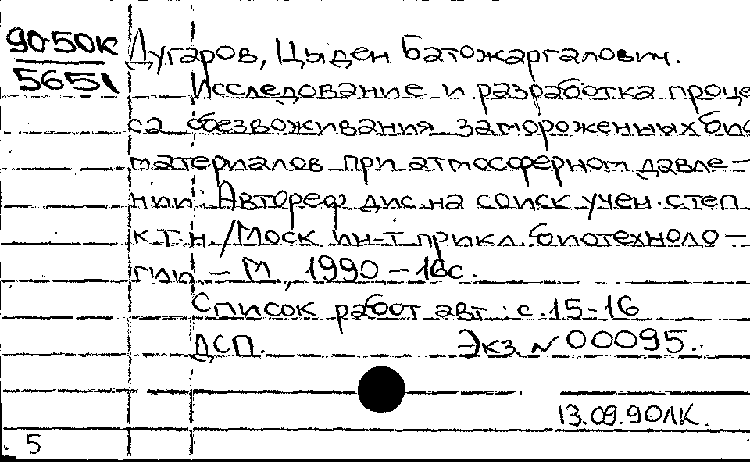 90-50к
5651
Дугаров, Цыден Батожаргалович.
Исследование и разработка проце
са обезвоживания замороженных био
материалов при атмосферном давле-
нии: Автореф. дис. на соиск. учен. степ.
к.т.н. / Моск. ин-т прикл. биотехноло-
гии. - М., 1990 - 16с.
Список работ авт.: с. 15-16
ДСП. Экз. № 00095.
13.09.90ЛК.
5